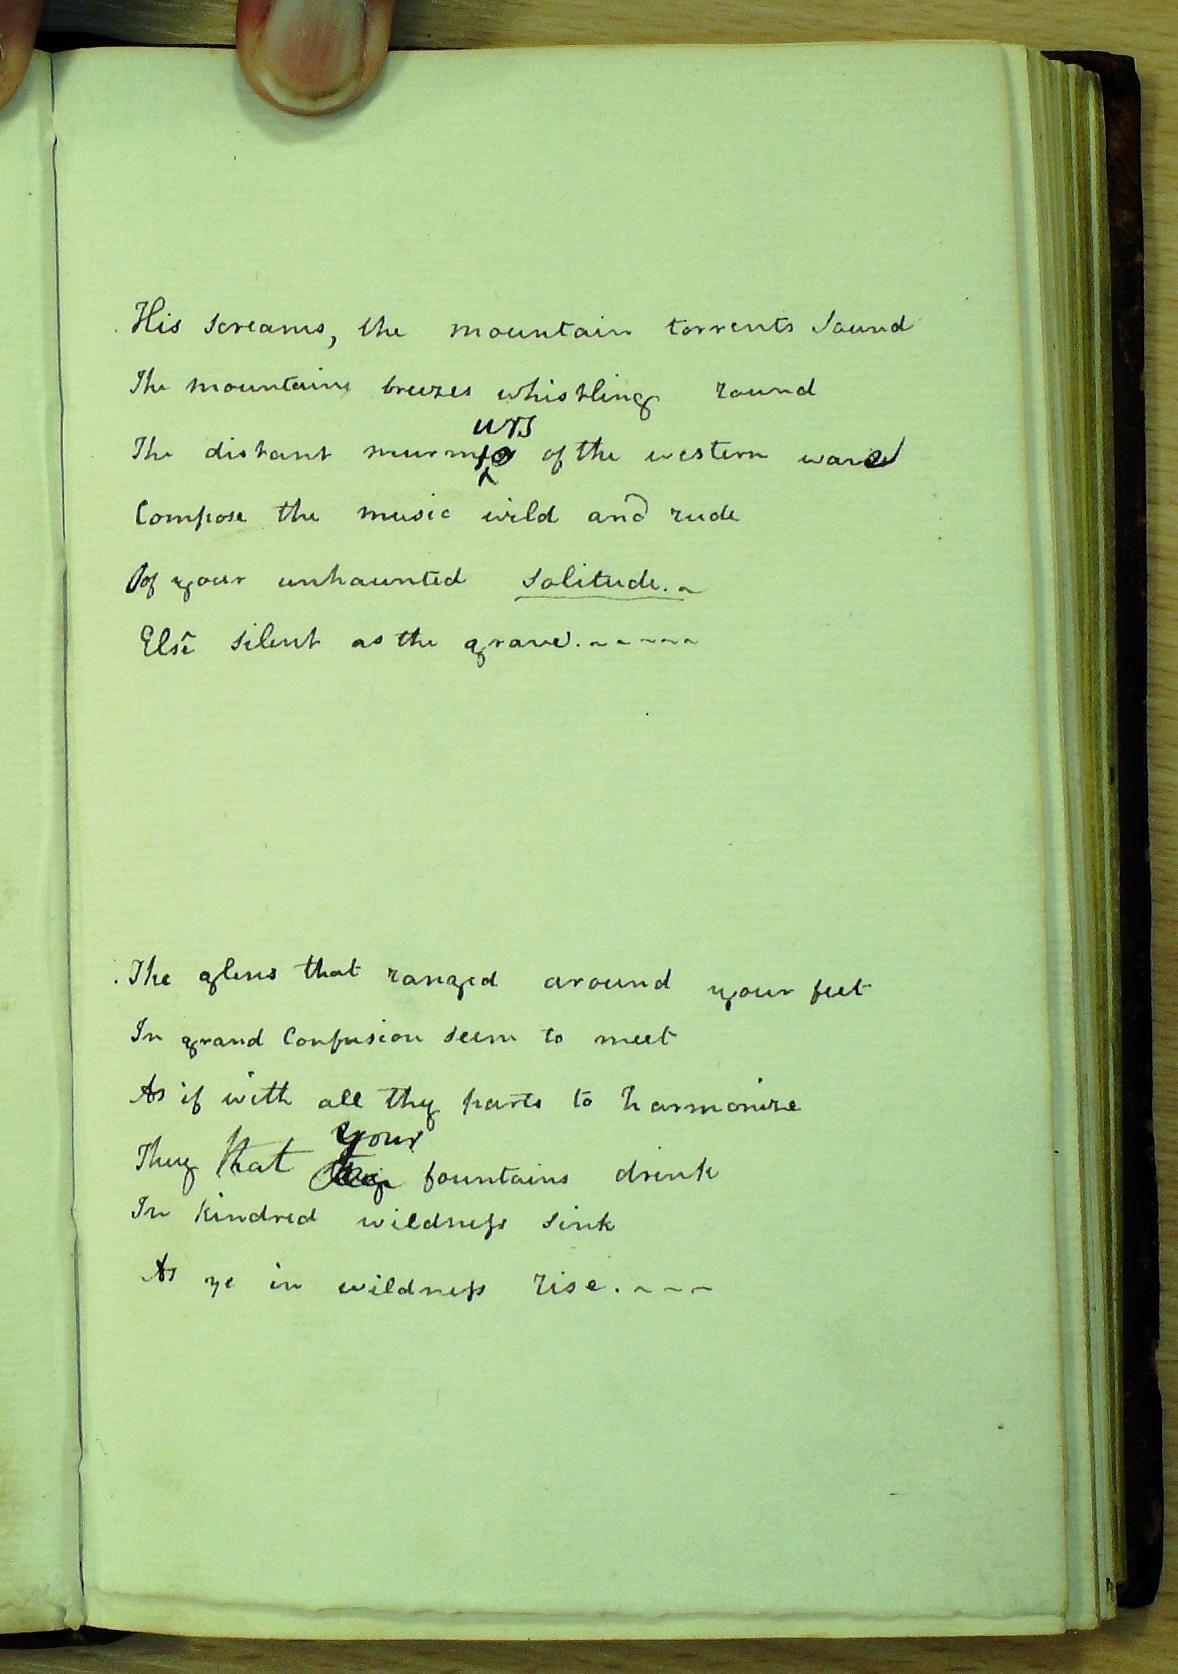 His screams, the mountain torrents sound
The mountains breezes whistling round
The distant murmurs of the western wave
Compose the music wild and rude
Of your unhaunted solitude. ~
Else silent as the grave. ~ ~ ~ ~ ~
The glens that ranged around your feet
In grand Confusion seem to meet
As if with all thy parts to harmonize
They that your fountains drink
In kindred wildness sink
As ye in wildness rise. ~ ~ ~